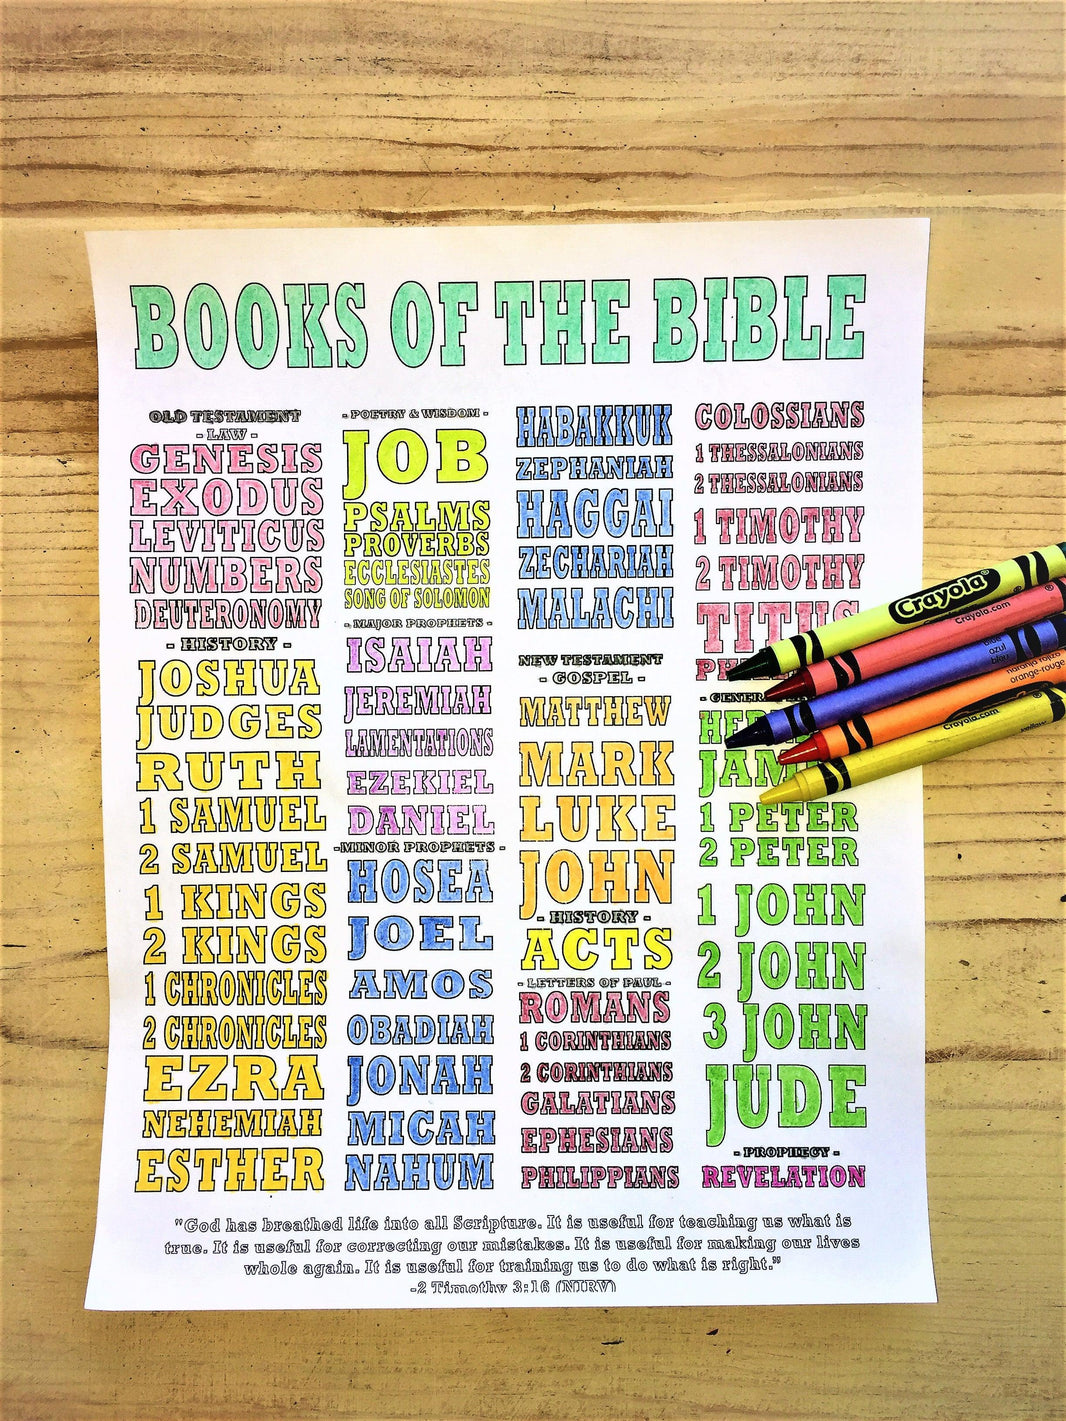 BOOKS OF THE BIBLE
OLD TESTAMENT
- LAW -
GENESIS
EXODUS
LEVITICUS
NUMBERS
DEUTERONOMY
- HISTORY -
JOSHUA
JUDGES
RUTH
1 SAMUEL
2 SAMUEL
1 KINGS
2 KINGS
1 CHRONICLES
2 CHRONICLES
EZRA
NEHEMIAH
ESTHER
- POETRY & WISDOM -
JOB
PSALMS
PROVERBS
ECCLESIASTES
SONG OF SOLOMON
- MAJOR PROPHETS -
ISAIAH
JEREMIAH
LAMENTATIONS
EZEKIEL
DANIEL
-MINOR PROPHETS -
HOSEA
JOEL
AMOS
OBADIAH
JONAH
MICAH
NAHUM
HABAKKUK
ZEPHANIAH
HAGGAI
ZECHARIAH
MALACHI
NEW TESTAMENT
- GOSPEL -
MATTHEW
MARK
LUKE
JOHN
- HISTORY -
ACTS
- LETTERS OF PAUL -
ROMANS
1 CORINTHIANS
2 CORINTHIANS
GALATIANS
EPHESIANS
PHILIPPIANS
COLOSSIANS
1 THESSALONIANS
2 THESSALONIANS
1 TIMOTHY
2 TIMOTHY
TITUS
1 PETER
2 PETER
1 JOHN
2 JOHN
3 JOHN
JUDE
- PROPHECY -
REVELATION
"God has breathed life into all Scripture. It is useful for teaching us what is
true. It is useful for correcting our mistakes. It is useful for making our lives
whole again. It is useful for training us to do what is right."
-2 Timothy 3:16 (NIRV)
Crayola®
Crayola.com
azul
bleu
naranja rojizo
orange-rouge
Crayola.com